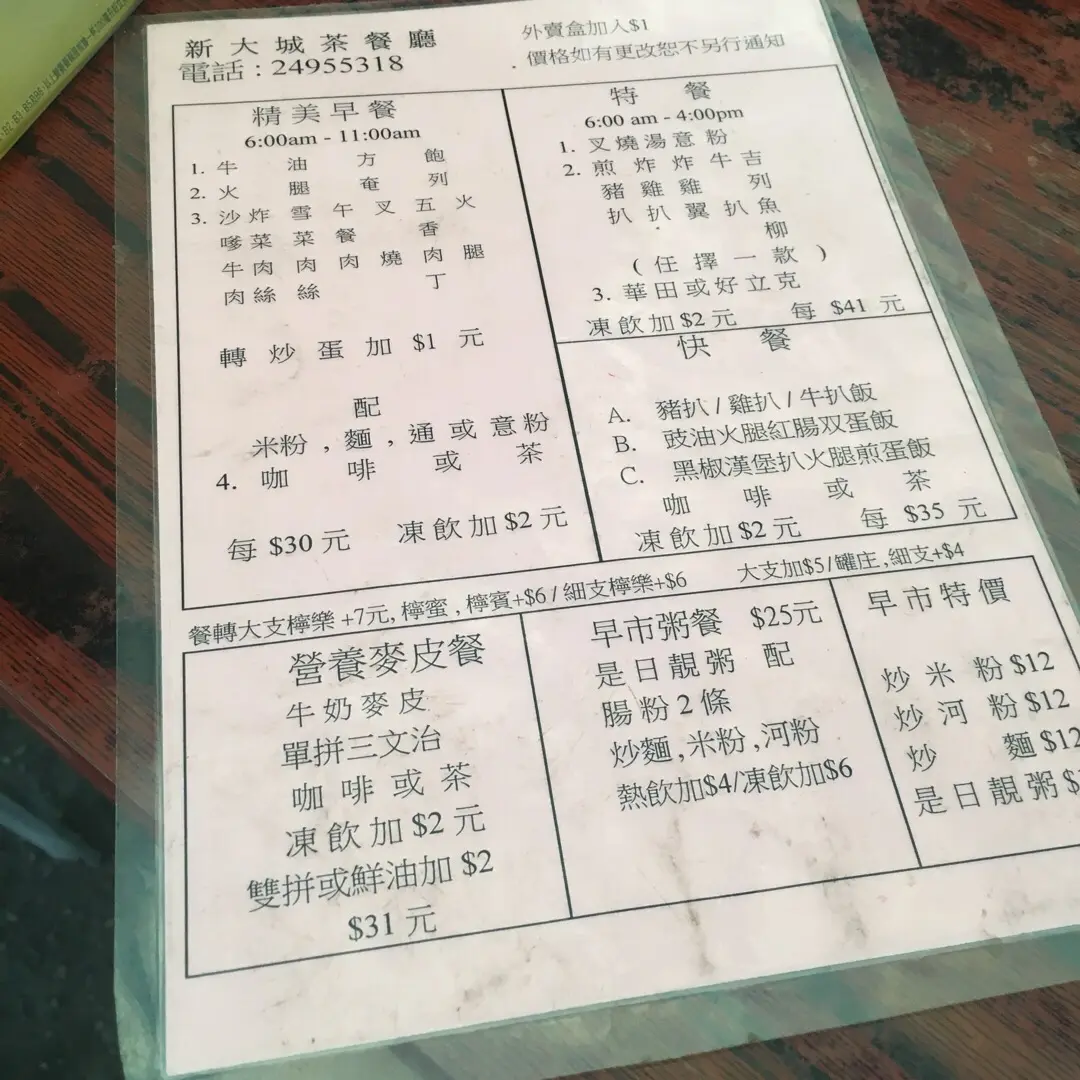 新大城茶餐廳
電話：24955318
外賣盒加入$1
價格如有更改恕不另行通知
精美早餐
6:00am - 11:00am
1. 牛油方飽
2. 火腿奄列
3. 沙炸雪午叉五火
嗲菜菜餐香
牛肉肉肉燒肉腿
肉絲絲丁
轉炒蛋加 $1 元
配
米粉 , 麵 , 通或意粉
4. 咖啡或茶
每 $30 元 凍飲加 $2 元
特餐
6:00 am - 4:00pm
1. 叉燒湯意粉
2. 煎炸炸牛吉
豬雞雞列
扒扒翼扒魚
柳
(任擇一款)
3. 華田或好立克
凍飲加 $2 元 每 $41 元
快餐
A. 豬扒 / 雞扒 / 牛扒飯
B. 豉油火腿紅腸双蛋飯
C. 黑椒漢堡扒火腿煎蛋飯
咖啡或茶
凍飲加 $2 元 每 $35 元
餐轉大支檸樂 +7元, 檸蜜 , 檸賓+$6 / 細支檸樂+$6 大支加$5/罐庄, 細支+$4
營養麥皮餐
牛奶麥皮
單拼三文治
咖啡或茶
凍飲加 $2 元
雙拼或鮮油加 $2
$31 元
早市粥餐 $25元
是日靚粥 配
腸粉 2 條
炒麵 , 米粉 , 河粉
熱飲加$4/凍飲加$6
早市特價
炒米粉 $12
炒河粉 $12
炒麵 $12
是日靚粥